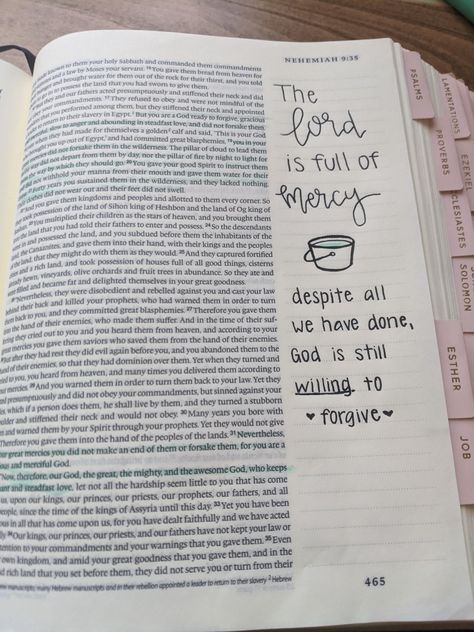 NEHEMIAH 9:35
known to them your holy Sabbath and commanded them commandments
and a law by Moses your servant. 15 You gave them bread from heaven for
and brought water for them out of the rock for their thirst, and you told
to possess the land that you had sworn to give them.
and our fathers acted presumptuously and stiffened their neck and did
your commandments. 17 They refused to obey and were not mindful of the
you performed among them, but they stiffened their neck and appointed
to their slavery in Egypt. But you are a God ready to forgive, gracious
slow to anger and abounding in steadfast love, and did not forsake them.
had made for themselves a golden calf and said, 'This is your God
you up out of Egypt,' and had committed great blasphemies, 19 you in your
did not forsake them in the wilderness. The pillar of cloud to lead them
did not depart from them by day, nor the pillar of fire by night to light for
the way by which they should go. 20 You gave your good Spirit to instruct them
not withhold your manna from their mouth and gave them water for their
Forty years you sustained them in the wilderness, and they lacked nothing.
clothes did not wear out and their feet did not swell.
you gave them kingdoms and peoples and allotted to them every corner. So
took possession of the land of Sihon king of Heshbon and the land of Og king of
You multiplied their children as the stars of heaven, and you brought them
the land that you had told their fathers to enter and possess. 24 So the descendants
in and possessed the land, and you subdued before them the inhabitants of the
the Canaanites, and gave them into their hand, with their kings and the peoples
the land, that they might do with them as they would. 25 And they captured fortified
and a rich land, and took possession of houses full of all good things, cisterns
hewn, vineyards, olive orchards and fruit trees in abundance. So they ate and
filled and became fat and delighted themselves in your great goodness.
Nevertheless, they were disobedient and rebelled against you and cast your law
behind their back and killed your prophets, who had warned them in order to turn
back to you, and they committed great blasphemies. 27 Therefore you gave them
the hand of their enemies, who made them suffer. And in the time of their suf-
they cried out to you and you heard them from heaven, and according to your
great mercies you gave them saviors who saved them from the hand of their enemies.
But after they had rest they did evil again before you, and you abandoned them to the
of their enemies, so that they had dominion over them. Yet when they turned and
to you, you heard from heaven, and many times you delivered them according to
mercies. 29 And you warned them in order to turn them back to your law. Yet they
presumptuously and did not obey your commandments, but sinned against your
which if a person does them, he shall live by them, and they turned a stubborn
and stiffened their neck and would not obey. 30 Many years you bore with
and warned them by your Spirit through your prophets. Yet they would not give
Therefore you gave them into the hand of the peoples of the lands. 31 Nevertheless,
your great mercies you did not make an end of them or forsake them, for you are a
and merciful God.
Now, therefore, our God, the great, the mighty, and the awesome God, who keeps
and steadfast love, let not all the hardship seem little to you that has come
us, upon our kings, our princes, our priests, our prophets, our fathers, and all
people, since the time of the kings of Assyria until this day. 33 Yet you have been
in all that has come upon us, for you have dealt faithfully and we have acted
34 Our kings, our princes, our priests, and our fathers have not kept your law or
attention to your commandments and your warnings that you gave them. 35 Even
own kingdom, and amid your great goodness that you gave them, and in the
rich land that you set before them, they did not serve you or turn from their
many Hebrew manuscripts and in their rebellion appointed a leader to return to their slavery 2 Hebrew
465
The
Lord
is full of
mercy
despite all
we have done,
God is still
willing to
forgive
PSALMS
PROVERBS
ESTHER
JOB
LAMENTATIONS
EZEKIEL
SOLOMON